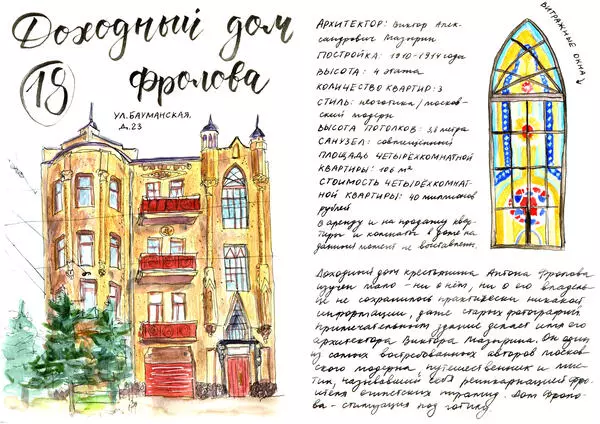 Доходный дом
18
Фролова
ул. Бауманская,
д. 23
Архитектор: Виктор Алек-
сандрович Мазырин
Постройка: 1910-1914 года
Высота: 4 этажа
Количество квартир: 3
Стиль: неоготика/москов-
ский модерн
Высота потолков: 3,8 метра
Санузел: совмещенный
Площадь четырёхкомнатной
квартиры: 106 м²
Стоимость четырёхкомнат-
ной квартиры: 40 миллионов
рублей
В аренду и на продажу квар-
тиры и комнаты в доме на
данный момент не выставлены.
Витражные окна
Доходный дом крестьянина Антона Фролова
изучен мало - ни о нём, ни о его владель-
це не сохранилось практически никакой
информации, даже старых фотографий
Примечательным здание делает имя его
архитектора Виктора Мазырина. Он один
из самых востребованных авторов москов-
ского модерна, путешественник и мис-
тик, называвший себя реинкарнацией стро-
ителя египетских пирамид. Дом Фроло-
ва - стилизация под готику